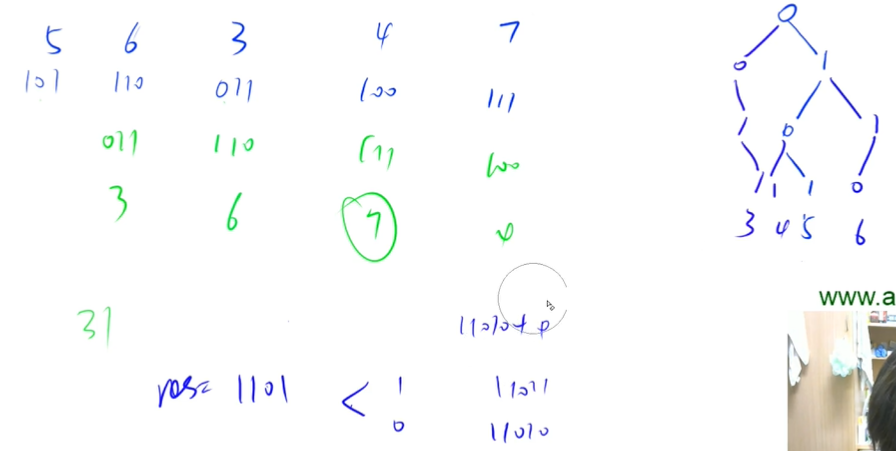 5 6 3 4 7
101 110 011 100 111
011 110 111 100
3 6 7 4
31
11010 + p
res= 1101 < 1 11011
0 11010
0
0 1
1 0 1
1 1 1 0
3 4 5 6
www.a